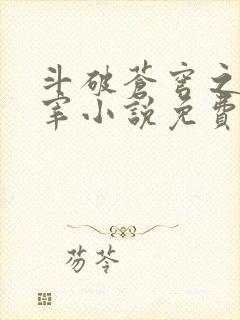 斗破蒼穹之
宰小說免費
芴苓